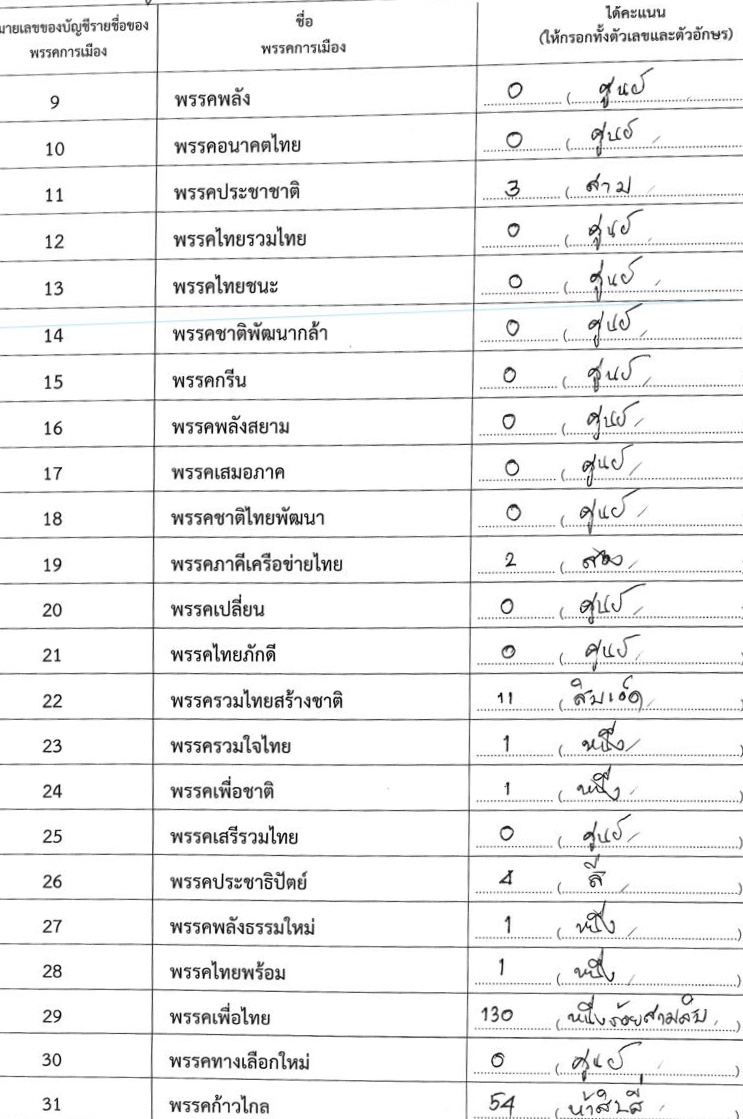 มายเลขของบัญชีรายชื่อของ
พรรคการเมือง
ชื่อ
พรรคการเมือง
ได้คะแนน
(ให้กรอกทั้งตัวเลขและตัวอักษร)
9 พรรคพลัง 0 ( ศูนย์
10 พรรคอนาคตไทย 0 ( ศูนย์
11 พรรคประชาชาติ 3 ( สาม
12 พรรคไทยรวมไทย 0 ( ศูนย์
13 พรรคไทยชนะ 0 ( ศูนย์
14 พรรคชาติพัฒนากล้า 0 ( ศูนย์
15 พรรคกรีน 0 ( ศูนย์
16 พรรคพลังสยาม 0 ( ศูนย์
17 พรรคเสมอภาค 0 ( ศูนย์
18 พรรคชาติไทยพัฒนา 0 ( ศูนย์
19 พรรคภาคีเครือข่ายไทย 2 ( สอง
20 พรรคเปลี่ยน 0 ( ศูนย์
21 พรรคไทยภักดี 0 ( ศูนย์
22 พรรครวมไทยสร้างชาติ 11 ( สิบเอ็ด )
23 พรรครวมใจไทย 1 ( หนึ่ง )
24 พรรคเพื่อชาติ 1 ( หนึ่ง )
25 พรรคเสรีรวมไทย 0 ( ศูนย์ )
26 พรรคประชาธิปัตย์ 4 ( สี่ )
27 พรรคพลังธรรมใหม่ 1 ( หนึ่ง )
28 พรรคไทยพร้อม 1 ( หนึ่ง )
29 พรรคเพื่อไทย 130 ( หนึ่งร้อยสามสิบ )
30 พรรคทางเลือกใหม่ 0 ( ศูนย์ )
31 พรรคก้าวไกล 54 ( ห้าสิบสี่ )